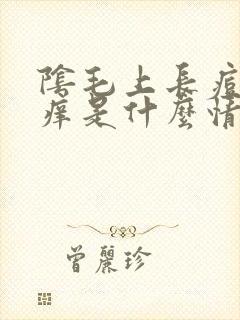 陰毛上長痘
痒是什麼情
曾麗珍